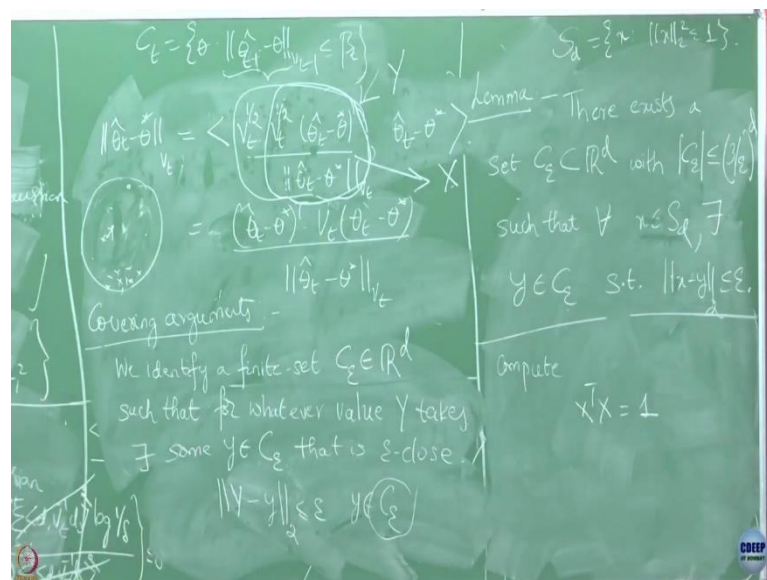 C_t = {θ : ||θ̂_{t-1} - θ||_{V_{t-1}} ≤ β_t}
Y
||θ̂_t - θ*||_{V_t} = < V_t^{1/2} V_t^{1/2} (θ̂_t - θ*) / ||θ̂_t - θ*||_{V_t} , θ̂_t - θ* >
X
= (θ̂_t - θ*)' V_t (θ̂_t - θ*) / ||θ̂_t - θ*||_{V_t}
Covering arguments -
We identify a finite-set C_ε ∈ ℝ^d
such that for whatever value Y takes
∃ some y ∈ C_ε that is ε-close.
||Y - y||_2 ≤ ε y ∈ C_ε
log 1/δ
S_d = {x : ||x||_2^2 = 1}.
Lemma - There exists a
set C_ε ⊂ ℝ^d with |C_ε| ≤ (3/ε)^d
such that ∀ x ∈ S_d, ∃
y ∈ C_ε s.t. ||x-y||_2 ≤ ε.
Compute
X^T X = 1
CDEEP
IIT BOMBAY